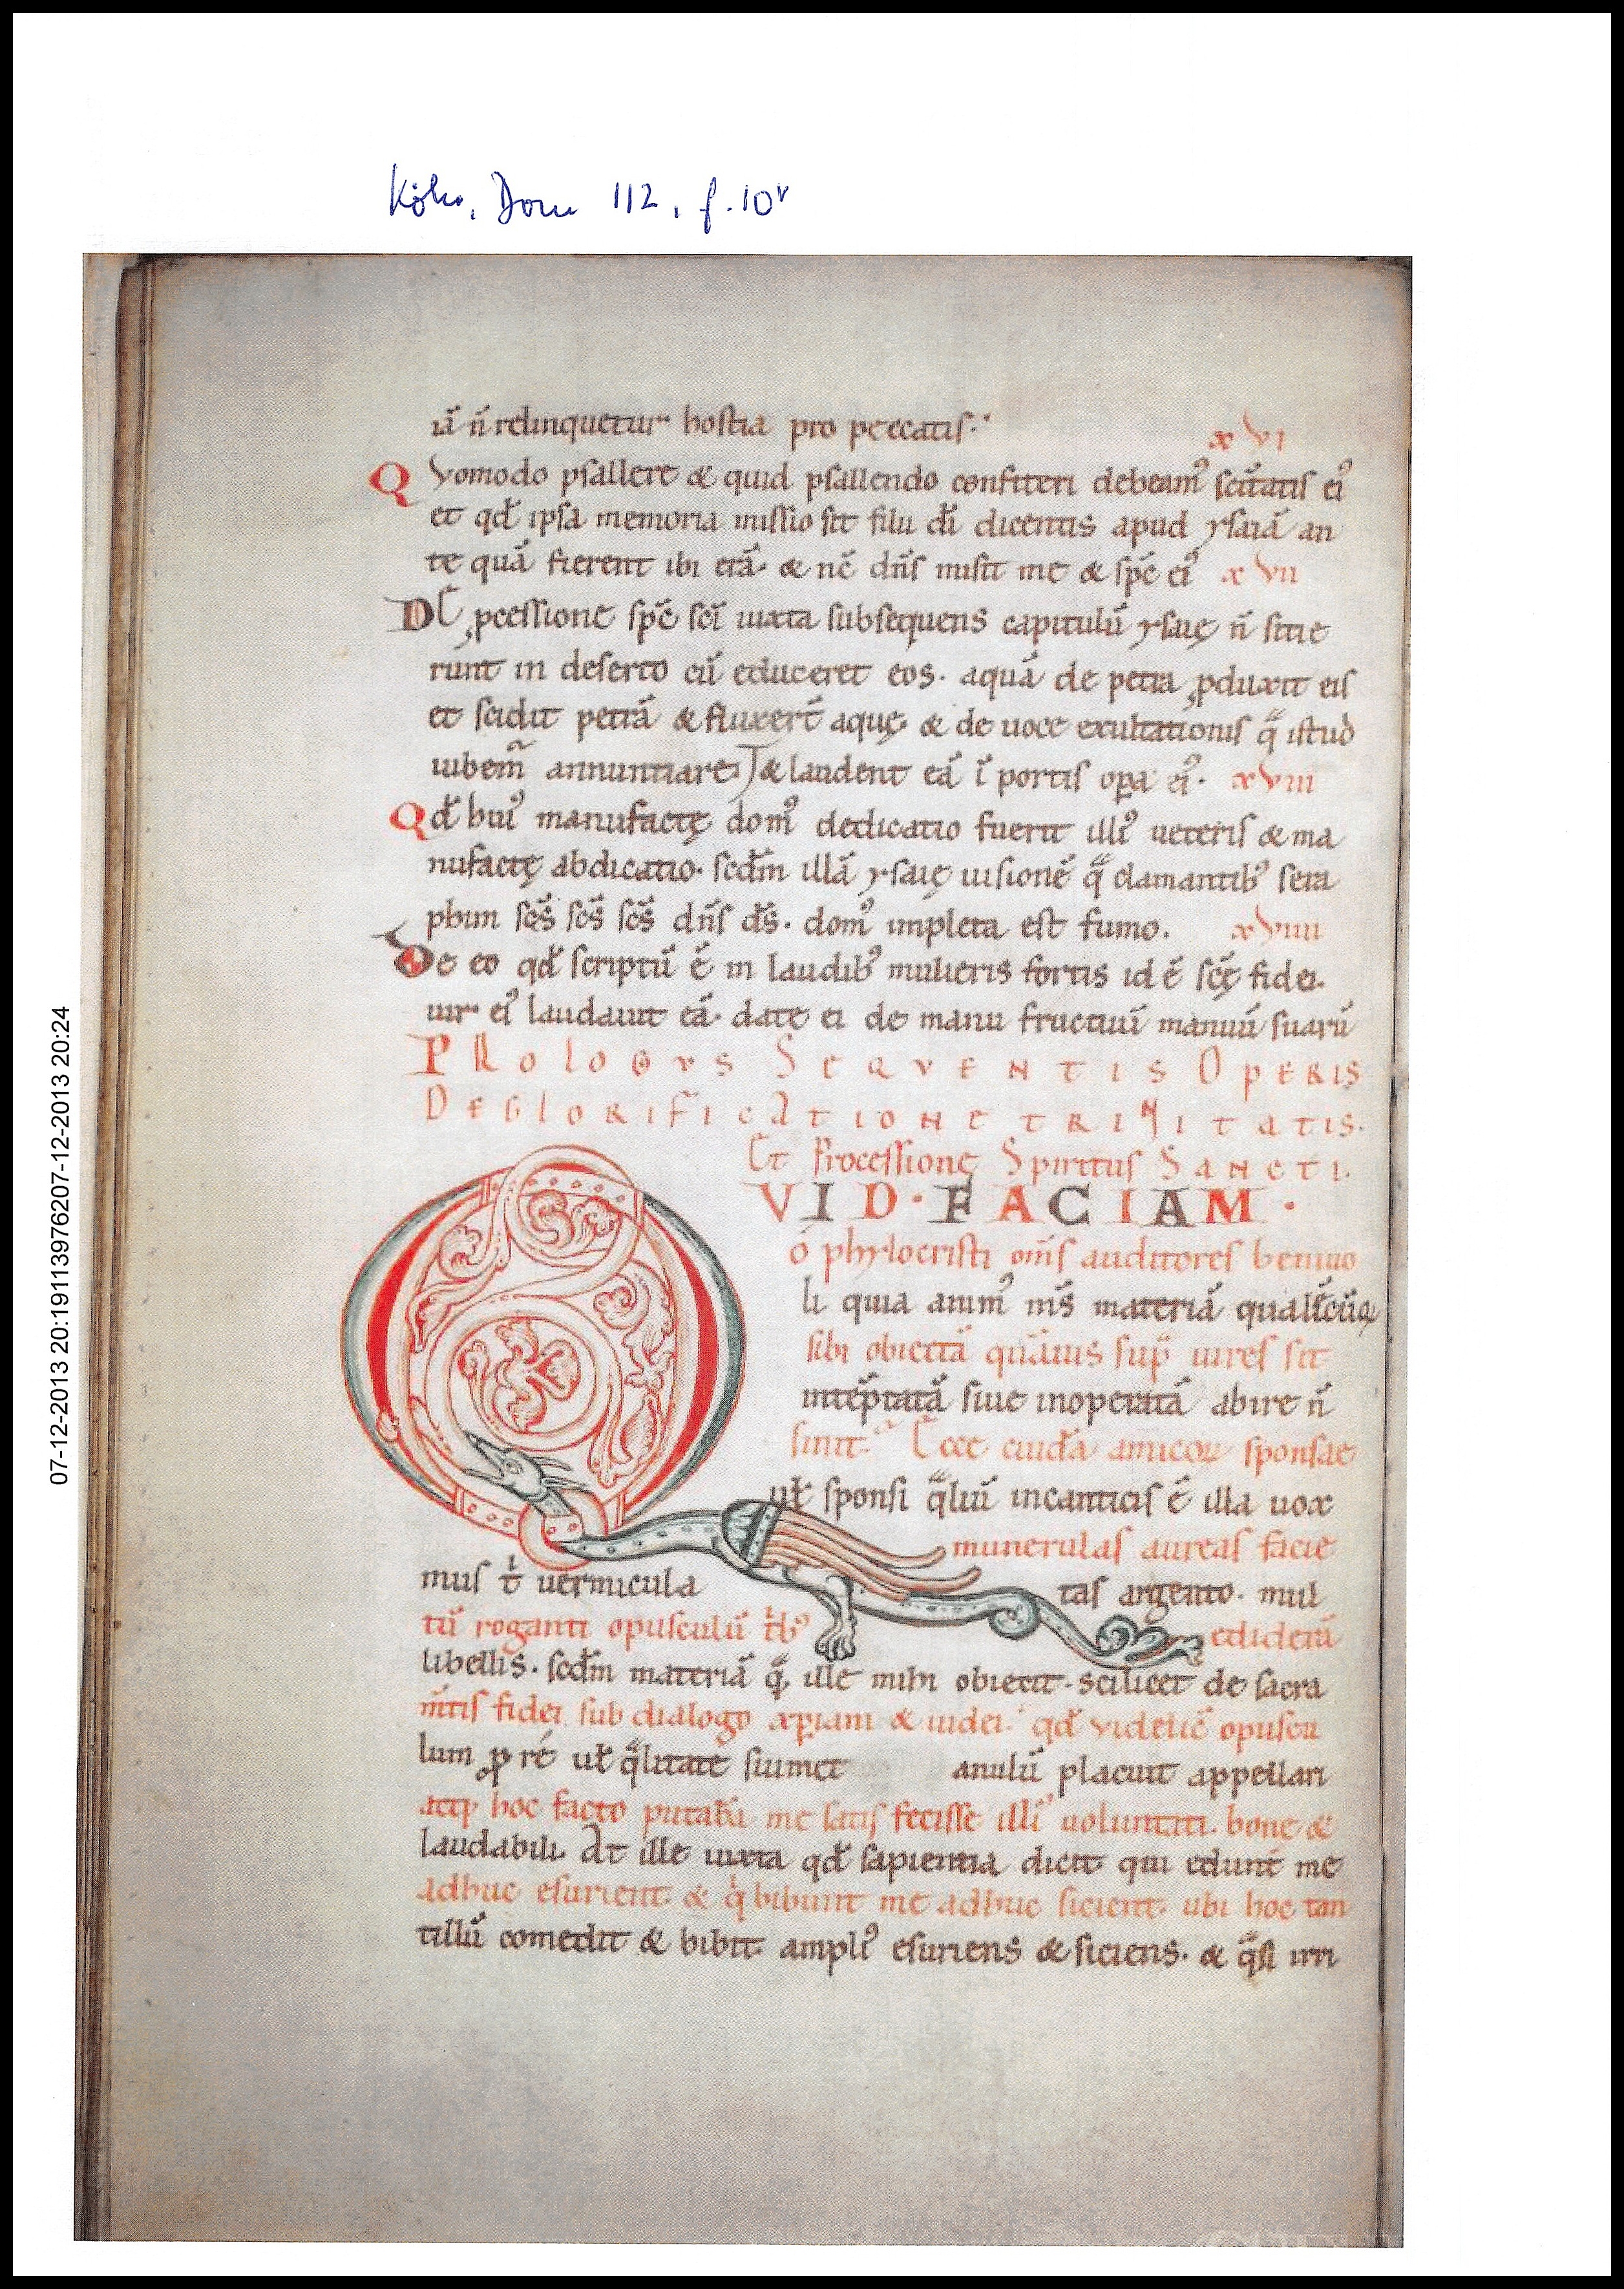 Köln, Dom 112, f. 10v
iā n̄ relinquetur hostia pro peccatis.
xVI
Qvomodo psallere & quid psallendo confiteri debeamꝰ scītatis eiꝰ
et qđ ipsa memoria missio sit filii dī dicentis apud ysaiā an
te quā fierent ibi erā. & nc̄ dn̄s misit me & sp̄c eiꝰ xVII
DE ꝓcessione sp̄c scī iuxta subsequens capitulū ysaię n̄ sitie
runt in deserto cū educeret eos. aquā de petra ꝓduxit eis
et scidit petrā & fluxer̄t aquę. & de uoce exultationis q̄ istud
iubem̄ annuntiare. & laudent eā ī portis oꝑa eiꝰ. xVIII
Qđ huiꝰ manufactę domꝰ dedicatio fuerit illiꝰ ueteris & ma
nufactę abdicatio. scđm illā ysaię uisionē q̄ clamantibꝰ sera
phim sc̄s sc̄s sc̄s dn̄s d̄s. domꝰ impleta est fumo. xVIIII
De eo qđ scriptū ē in laudibꝰ mulieris fortis id ē sc̄ę fidei.
uir eiꝰ laudauit eā. date ei de manu fructuū manuū suarū
PROLOGVS SEQVENTIS OPERIS
DE GLORIFICATIONE TRINITATIS.
Et Processione Spiritus SANCTI.
QVID·FACIAM·
ó phylocristi om̄s auditores beniuo
li quia animꝰ m̄s materiā qualēcūq;
sibi obiectā quāuis suꝑ uires sit
intēptatā siue inoperatā abire n̄
sinit. Ecce cuidā amicoꝝ sponsae
uł sponsi q̄liū in canticis ē illa uox
munerulas aureas facie
mus t̄ uermicula tas argento. mul
tū roganti opusculū tͥbꝰ ediderā
libellis. scđm materiā q̄ ille mihi obiecit. scilicet de sacra
m̄tis fidei sub dialogo xp̄iani & iudei. qđ videlic̄ opuscu
lum ꝓ ré uł q̄litate siumet anulū placuit appellari
atq; hoc facto putabā me satis fecisse illiꝰ uoluntati. bone &
laudabili. At ille iuxta qđ sapientia dicit qui edunt me
adhuc esurient. & qͥ bibunt me adhuc sicient. ubi hoc tan
tillū comedit & bibit ampliꝰ esuriens & siciens. & q̄si irri
07-12-2013 20:19113976207-12-2013 20:24